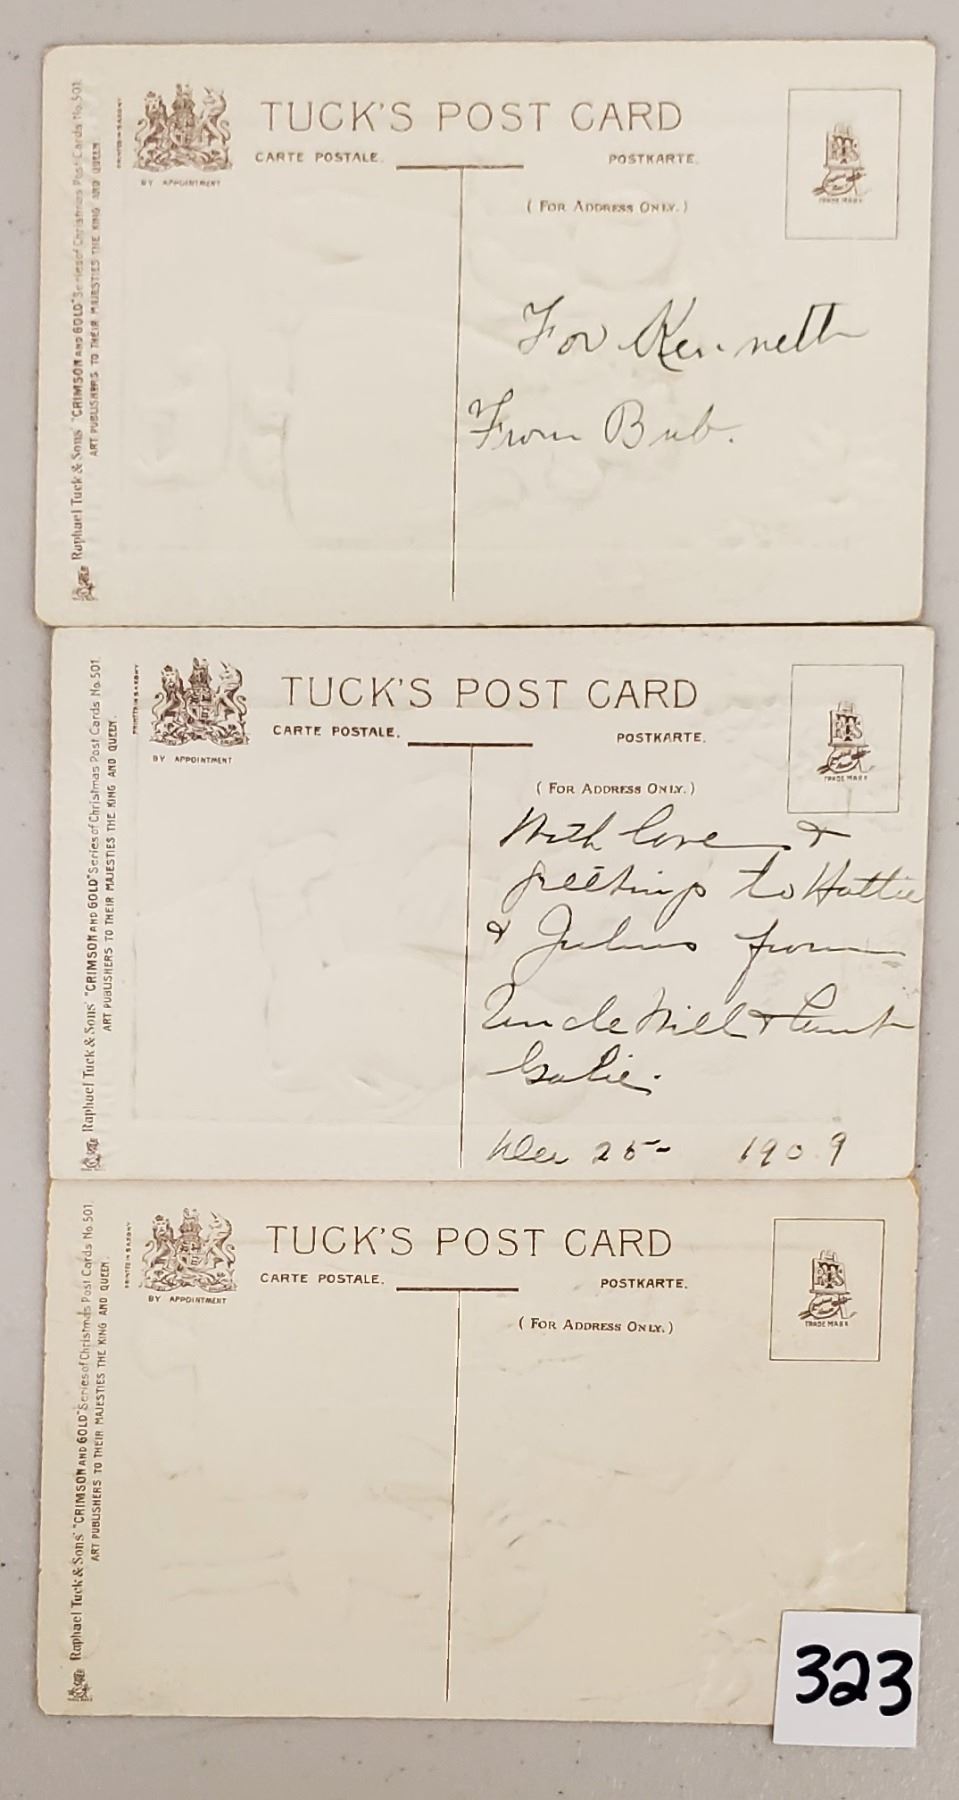 Raphael Tuck & Sons' "CRIMSON AND GOLD" Series of Christmas Post Cards No. 501.
ART PUBLISHERS TO THEIR MAJESTIES THE KING AND QUEEN.
PRINTED IN SAXONY
BY APPOINTMENT
TUCK'S POST CARD
CARTE POSTALE.
POSTKARTE.
(FOR ADDRESS ONLY.)
TRADE MARK
For Kenneth
From Bub.
Raphael Tuck & Sons' "CRIMSON AND GOLD" Series of Christmas Post Cards No. 501.
ART PUBLISHERS TO THEIR MAJESTIES THE KING AND QUEEN.
PRINTED IN SAXONY
BY APPOINTMENT
TUCK'S POST CARD
CARTE POSTALE.
POSTKARTE.
(FOR ADDRESS ONLY.)
TRADE MARK
With love &
greetings to Hattie
& Julius from
Uncle Will & Aunt
Dec 25- 1909
Raphael Tuck & Sons' "CRIMSON AND GOLD" Series of Christmas Post Cards No. 501.
ART PUBLISHERS TO THEIR MAJESTIES THE KING AND QUEEN.
PRINTED IN SAXONY
BY APPOINTMENT
TUCK'S POST CARD
CARTE POSTALE.
POSTKARTE.
(FOR ADDRESS ONLY.)
TRADE MARK
323